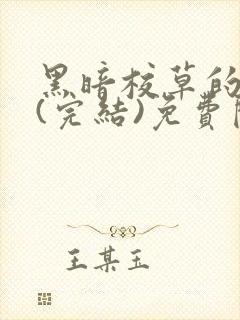 黑暗校草的
(完結)免費
王某玉